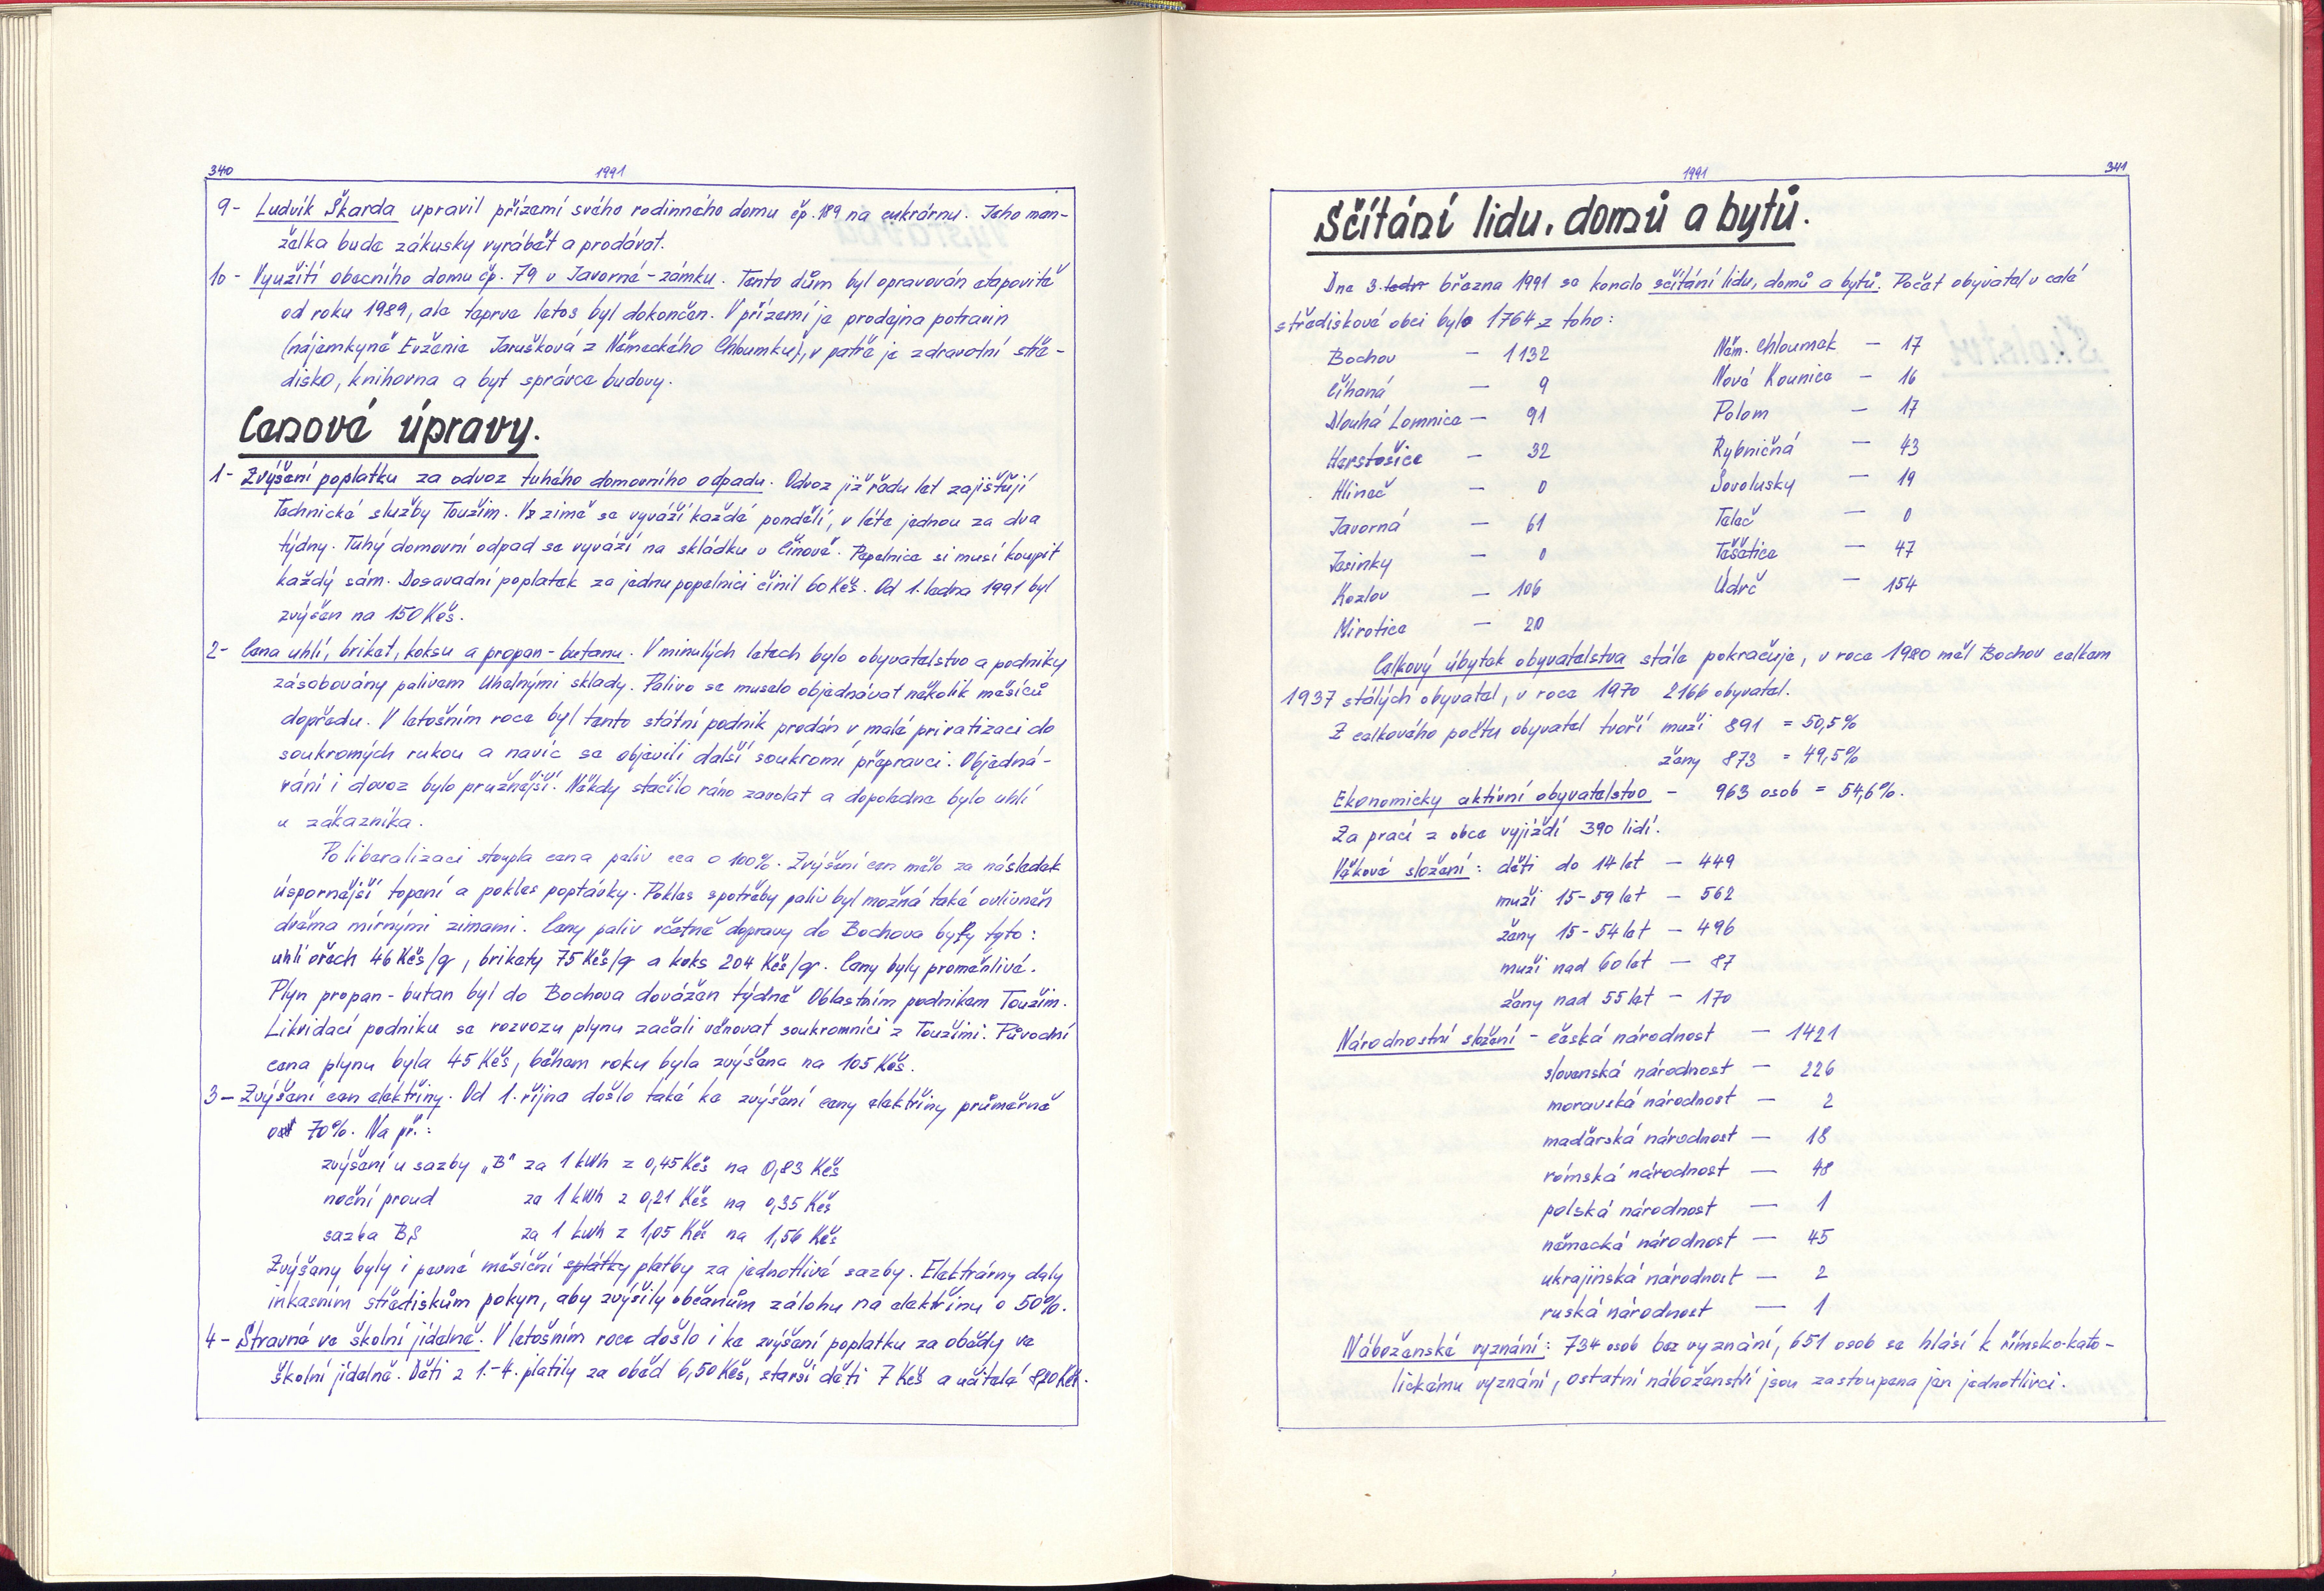 340
1991
9- Ludvík Škarda upravil přízemí svého rodinného domu čp. 189 na cukrárnu. Jeho man-
želka bude zákusky vyrábět a prodávat.
10- Využití obecního domu čp. 79 v Javorné-zámku. Tento dům byl opravován etapovitě
od roku 1989, ale teprve letos byl dokončen. V přízemí je prodejna potravin
(nájemkyně Evženie Jarušková z Německého Chloumku), v patře je zdravotní stře-
disko, knihovna a byt správce budovy.
Cenové úpravy.
1- Zvýšení poplatku za odvoz tuhého domovního odpadu. Odvoz již řadu let zajišťují
Technické služby Toužim. V zimě se vyváží každé pondělí, v létě jednou za dva
týdny. Tuhý domovní odpad se vyváží na skládku v Činové. Popelnice si musí koupit
každý sám. Dosavadní poplatek za jednu popelnici činil 60 Kčs. Od 1. ledna 1991 byl
zvýšen na 150 Kčs.
2- Cena uhlí, briket, koksu a propan-butanu. V minulých letech bylo obyvatelstvo a podniky
zásobovány palivem Uhelnými sklady. Palivo se muselo objednávat několik měsíců
dopředu. V letošním roce byl tento státní podnik prodán v malé privatizaci do
soukromých rukou a navíc se objevili další soukromí přepravci. Objedná-
vání i dovoz bylo pružnější. Někdy stačilo ráno zavolat a dopoledne bylo uhlí
u zákazníka.
Po liberalizaci stoupla cena paliv cca o 100%. Zvýšení cen mělo za následek
úspornější topení a pokles poptávky. Pokles spotřeby paliv byl možná také ovlivněn
dvěma mírnými zimami. Ceny paliv včetně dopravy do Bochova byly tyto:
uhlí ořech 46 Kčs/q, brikety 75 Kčs/q a koks 204 Kčs/q. Ceny byly proměnlivé.
Plyn propan-butan byl do Bochova dovážen týdně Oblastním podnikem Toužim.
Likvidací podniku se rozvozu plynu začali věnovat soukromníci z Toužimi. Původní
cena plynu byla 45 Kčs, během roku byla zvýšena na 105 Kčs.
3- Zvýšení cen elektřiny. Od 1. října došlo také ke zvýšení ceny elektřiny průměrně
o 70%. Na př.:
zvýšení u sazby „B" za 1 kWh z 0,45 Kčs na 0,83 Kčs
noční proud za 1 kWh z 0,21 Kčs na 0,35 Kčs
sazba BS za 1 kWh z 1,05 Kčs na 1,56 Kčs
Zvýšeny byly i pevné měsíční splátky platby za jednotlivé sazby. Elektrárny daly
inkasním střediskům pokyn, aby zvýšily občanům zálohu na elektřinu o 50%.
4- Stravné ve školní jídelně. V letošním roce došlo i ke zvýšení poplatku za obědy ve
školní jídelně. Děti z 1.-4. platily za oběd 6,50 Kčs, starší děti 7 Kčs a učitelé 8,20 Kčs.
1991
341
Sčítání lidu, domů a bytů.
Dne 3. ledn března 1991 se konalo sčítání lidu, domů a bytů. Počet obyvatel v celé
střediskové obci bylo 1764 z toho:
Bochov - 1132 Něm. Chloumek - 17
Číhaná - 9 Nová Kounice - 16
Dlouhá Lomnice - 91 Polom - 17
Herstošice - 32 Rybničná - 43
Hlineč - 0 Sovolusky - 19
Javorná - 61 Teleč - 0
Jesínky - 0 Těšetice - 47
Kozlov - 106 Údrč - 154
Mirotice - 20
Celkový úbytek obyvatelstva stále pokračuje, v roce 1980 měl Bochov celkem
1937 stálých obyvatel, v roce 1970 2166 obyvatel.
Z celkového počtu obyvatel tvoří muži 891 = 50,5%
ženy 873 = 49,5%
Ekonomicky aktivní obyvatelstvo - 963 osob = 54,6%.
Za prací z obce vyjíždí 390 lidí.
Věkové složení: děti do 14 let - 449
muži 15-59 let - 562
ženy 15-54 let - 496
muži nad 60 let - 87
ženy nad 55 let - 170
Národnostní složení - česká národnost - 1421
slovenská národnost - 226
moravská národnost - 2
maďarská národnost - 18
rómská národnost - 48
polská národnost - 1
německá národnost - 45
ukrajinská národnost - 2
ruská národnost - 1
Náboženské vyznání: 734 osob bez vyznání, 651 osob se hlásí k římsko-kato-
lickému vyznání, ostatní náboženství jsou zastoupena jen jednotlivci.